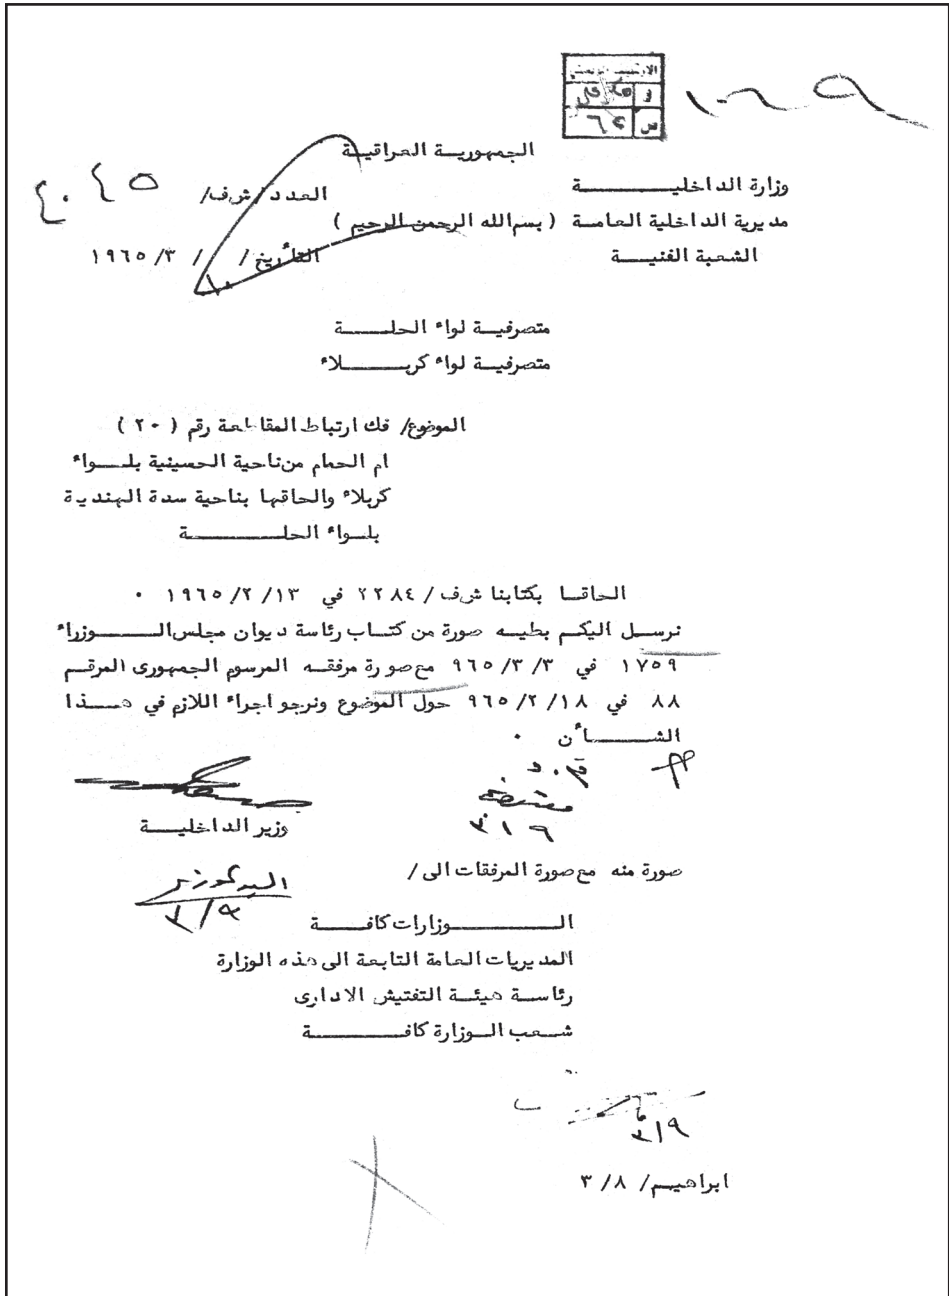 الجمهورية العراقية
وزارة الداخلية
العدد/ ش.ف/ ٤٠٤٥
مديرية الداخلية العامة ( بسم الله الرحمن الرحيم )
الشعبة الفنية
التأريخ/ ١٠ / ٣/ ١٩٦٥
متصرفية لواء الحلة
متصرفية لواء كربلاء
الموضوع/ فك ارتباط المقاطعة رقم ( ٢٠ )
ام الحمام من ناحية الحسينية بلواء
كربلاء والحاقها بناحية سدة الهندية
بلواء الحلة
الحاقا بكتابنا ش.ف/ ٢٢٨٤ في ١٣/ ٢/ ١٩٦٥ ٠
نرسل اليكم بطيه صورة من كتاب رئاسة ديوان مجلس الوزراء
١٧٥٩ في ٣/ ٣/ ٩٦٥ مع صورة مرفقه المرسوم الجمهورى المرقم
٨٨ في ١٨/ ٢/ ٩٦٥ حول الموضوع ونرجو اجراء اللازم في هذا
الشأن ٠
٩ / ٣
وزير الداخلية
صورة منه مع صورة المرفقات الى/
٩/ ٣
الوزارات كافة
المديريات العامة التابعة الى هذه الوزارة
رئاسة هيئة التفتيش الادارى
شعب الوزارة كافة
٩/ ٣
ابراهيم/ ٨/ ٣